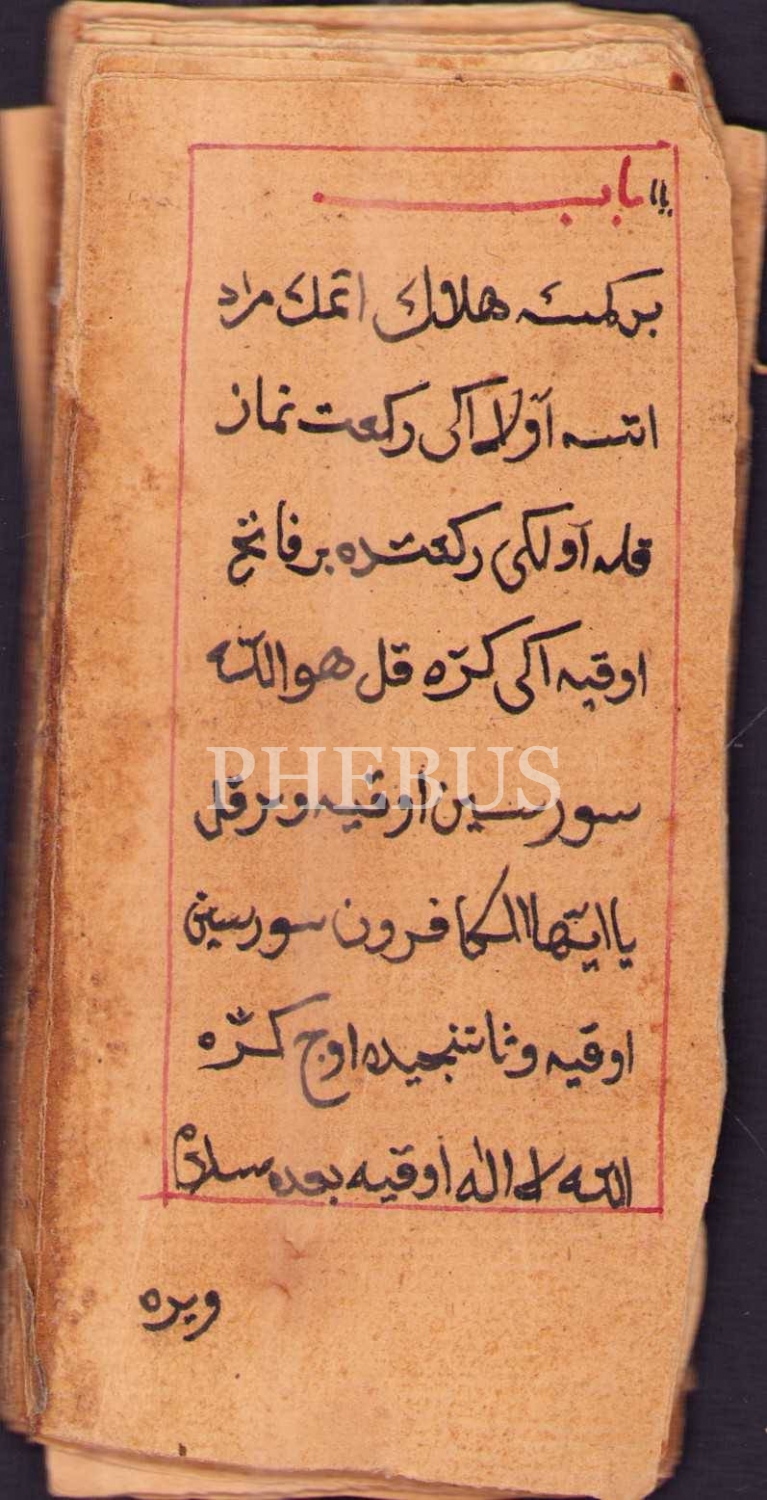 باب
بر كمسه هلاك اتمك مراد
اتسه اوّلا اكى ركعت نماز
قله اولكى ركعتده بر فاتح
اوقيه اكى كرّه قل هو اللّه
PHEBUS
سورسين اوقيه و بر قل
يا ايّها الكافرون سورسين
اوقيه و ثانيده اوچ كرّه
اللّه لا اله اوقيه بعده سلام
ويره